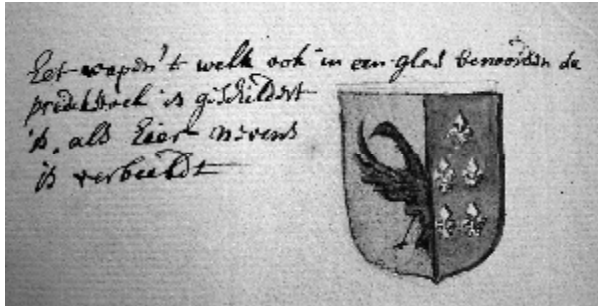 Het wapen 't welk ook in een glas benoorden de
predikstoel is geschildert
is, als hier nevens
is verbeeldt